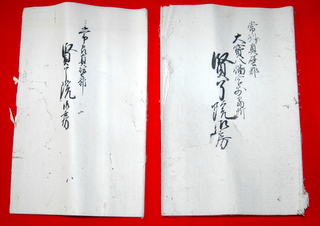 常州真壁郡
大寳八幡宮別當所
賢了院御房
常州真壁郡
賢了院御房